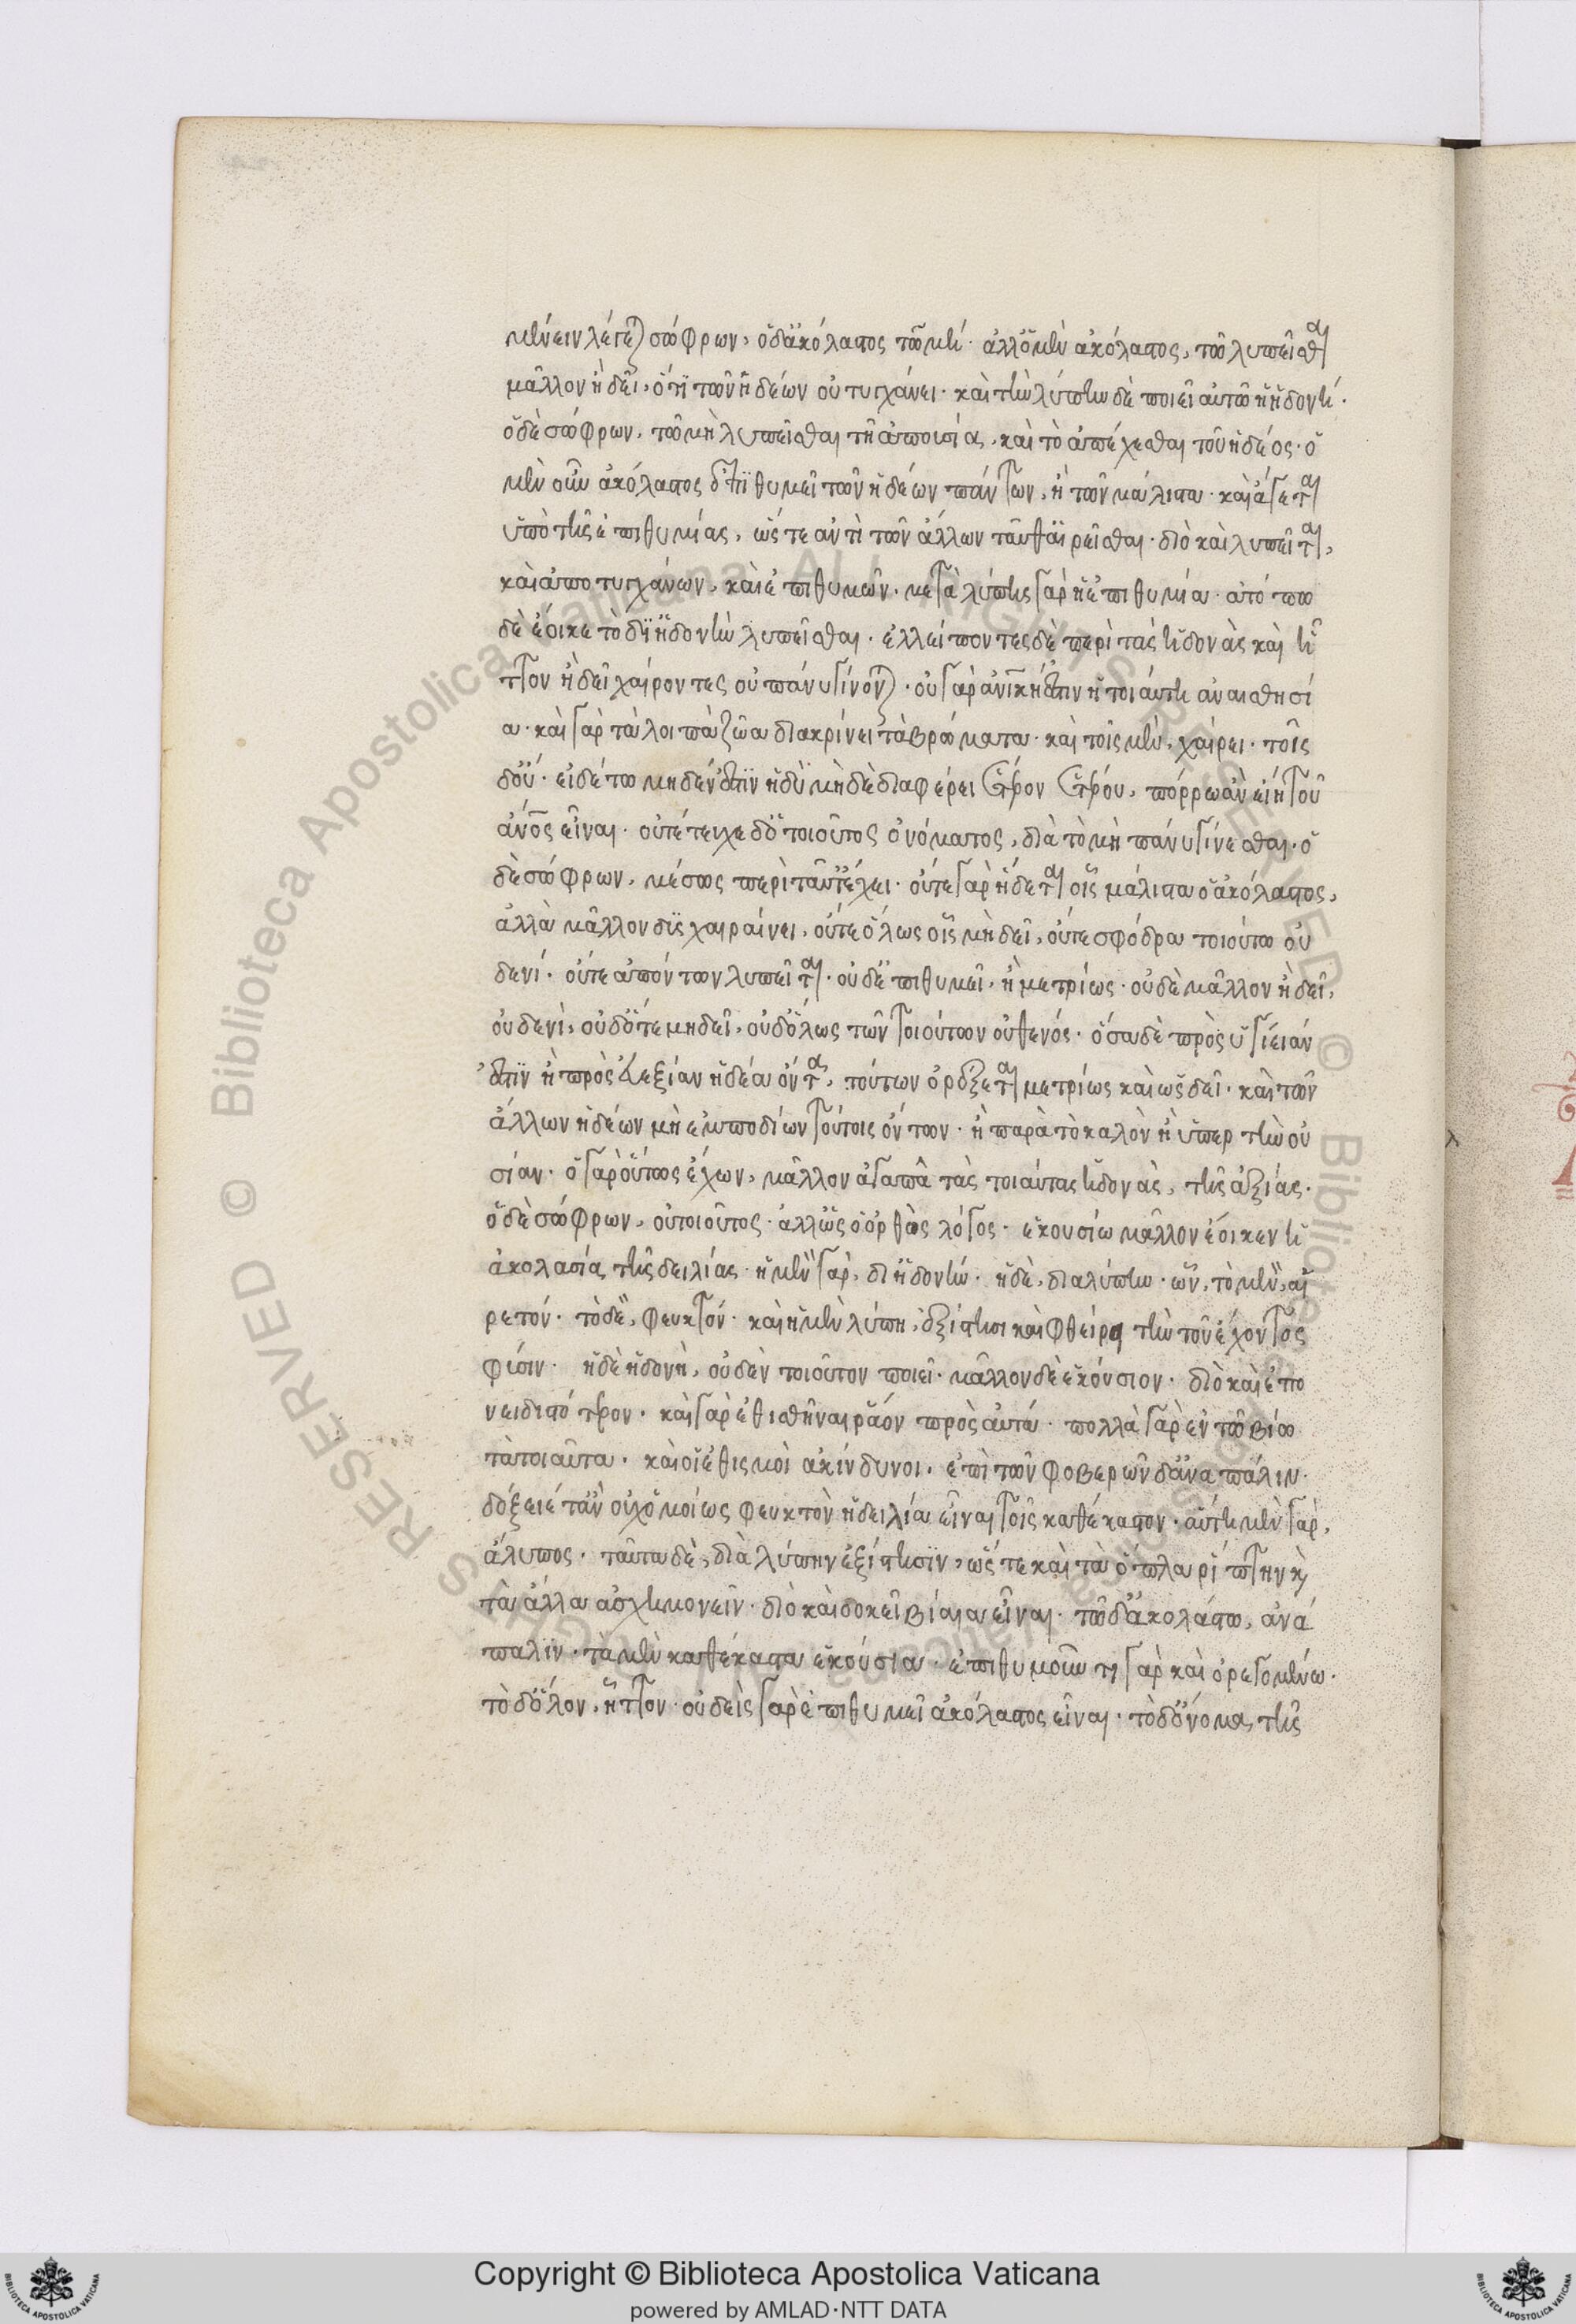 μένειν λέγεται σώφρων, ὁ δ' ἀκόλαστος τῶ μή. ἀλλ' ὁ μὲν ἀκόλαστος, τῶ λυπεῖσθαι
μᾶλλον ἢ δεῖ, ὅτι τῶν ἡδέων οὐ τυγχάνει. καὶ τὴν λύπην δὲ ποιεῖ αὐτῶ ἡ ἡδονή.
ὁ δὲ σώφρων, τῶ μὴ λυπεῖσθαι τῇ ἀπουσίᾳ, καὶ τὸ ἀπέχεσθαι τοῦ ἡδέος. ὁ
μὲν οὖν ἀκόλαστος ἐπιθυμεῖ τῶν ἡδέων πάντων, ἢ τῶν μάλιστα. καὶ ἄγεται
ὑπὸ τῆς ἐπιθυμίας, ὥστε ἀντὶ τῶν ἄλλων ταῦθ' αἱρεῖσθαι. διὸ καὶ λυπεῖται,
καὶ ἀποτυγχάνων, καὶ ἐπιθυμῶν. μετὰ λύπης γὰρ ἡ ἐπιθυμία. ἀτόπω
δὲ ἔοικε τὸ δι' ἡδονὴν λυπεῖσθαι. ἐλλείποντες δὲ περὶ τὰς ἡδονὰς καὶ ἧτ
τον ἢ δεῖ χαίροντες οὐ πάνυ γίνονται. οὐ γὰρ ἀνικὴ ἐστὶν ἡ τοιαύτη ἀναισθησί
α. καὶ γὰρ τὰ λοιπὰ ζῶα διακρίνει τὰ βρώματα. καὶ τοῖς μὲν, χαίρει. τοῖς
δ' οὔ. εἰ δέ τω μηδέν ἐστιν ἡδὺ μὴ δὲ διαφέρει ἕτερον ἑτέρου, πόρρω ἂν εἴη τοῦ
ἀνος εἶναι. οὐ τέτευχε δ' ὁ τοιοῦτος ὀνόματος, διὰ τὸ μὴ πάνυ γίνεσθαι. ὁ
δὲ σώφρων, μέσως περὶ ταῦτ' ἔχει. οὔτε γὰρ ἥδεται οἷς μάλιστα ὁ ἀκόλαστος,
ἀλλὰ μᾶλλον δυσχεραίνει, οὔτε ὅλως οἷς μὴ δεῖ, οὔτε σφόδρα τοιούτω οὐ
δενί. οὔτε ἀπόντων λυπεῖται. οὐδ' ἐπιθυμεῖ, ἢ μετρίως. οὐδὲ μᾶλλον ἢ δεῖ,
οὐδενὶ, οὐδ' ὅτε μὴ δεῖ, οὐδ' ὅλως τῶν τοιούτων οὐθενός. ὅσα δὲ πρὸς ὑγίειάν
ἐστιν ἢ πρὸς εὐεξίαν ἡδέα ὄντα, τούτων ὀρέξεται μετρίως καὶ ὡς δεῖ. καὶ τῶν
ἄλλων ἡδέων μὴ ἐμποδίων τούτοις ὄντων. ἢ παρὰ τὸ καλὸν ἢ ὑπὲρ τὴν οὐ
σίαν. ὁ γὰρ οὕτως ἔχων, μᾶλλον ἀγαπᾶ τὰς τοιαύτας ἡδονὰς, τῆς ἀξίας.
ὁ δὲ σώφρων, οὐ τοιοῦτος. ἀλλ' ὡς ὁ ὀρθὸς λόγος. ἑκουσίω μᾶλλον ἔοικεν ἡ
ἀκολασία τῆς δειλίας. ἡ μὲν γὰρ, δι' ἡδονήν. ἡ δὲ, διὰ λύπην. ὧν, τὸ μὲν, αἱ
ρετόν. τὸ δὲ, φευκτόν. καὶ ἡ μὲν λύπη, ἐξίστησι καὶ φθείρει τὴν τοῦ ἔχοντος
φύσιν. ἡ δὲ ἡδονὴ, οὐδὲν τοιοῦτον ποιεῖ. μᾶλλον δὲ ἑκούσιον. διὸ καὶ ἐπο
νειδιστότερον. καὶ γὰρ ἐθισθῆναι ῥᾷον πρὸς αὐτά. πολλὰ γὰρ ἐν τῶ βίω
τὰ τοιαῦτα. καὶ οἱ ἐθισμοὶ ἀκίνδυνοι. ἐπὶ τῶν φοβερῶν δ' ἀνάπαλιν.
δόξειε τ' ἂν οὐχ ὁμοίως φευκτὸν ἡ δειλία εἶναι τοῖς καθέκαστον. αὕτη μὲν γὰρ,
ἄλυπος. ταῦτα δὲ, διὰ λύπην ἐξίστησιν, ὥστε καὶ τὰ ὅπλα ῥίπτειν καὶ
τὰ ἄλλα ἀσχημονεῖν. διὸ καὶ δοκεῖ βίαια εἶναι. τῶ δ' ἀκολάστω, ἀνά
παλιν. τὰ μὲν καθέκαστα ἑκούσια. ἐπιθυμοῦντι γὰρ καὶ ὀρεγομένω.
τὸ δ' ὅλον, ἧττον. οὐδεὶς γὰρ ἐπιθυμεῖ ἀκόλαστος εἶναι. τὸ δ' ὄνομα τῆς
Copyright © Biblioteca Apostolica Vaticana
powered by AMLAD·NTT DATA